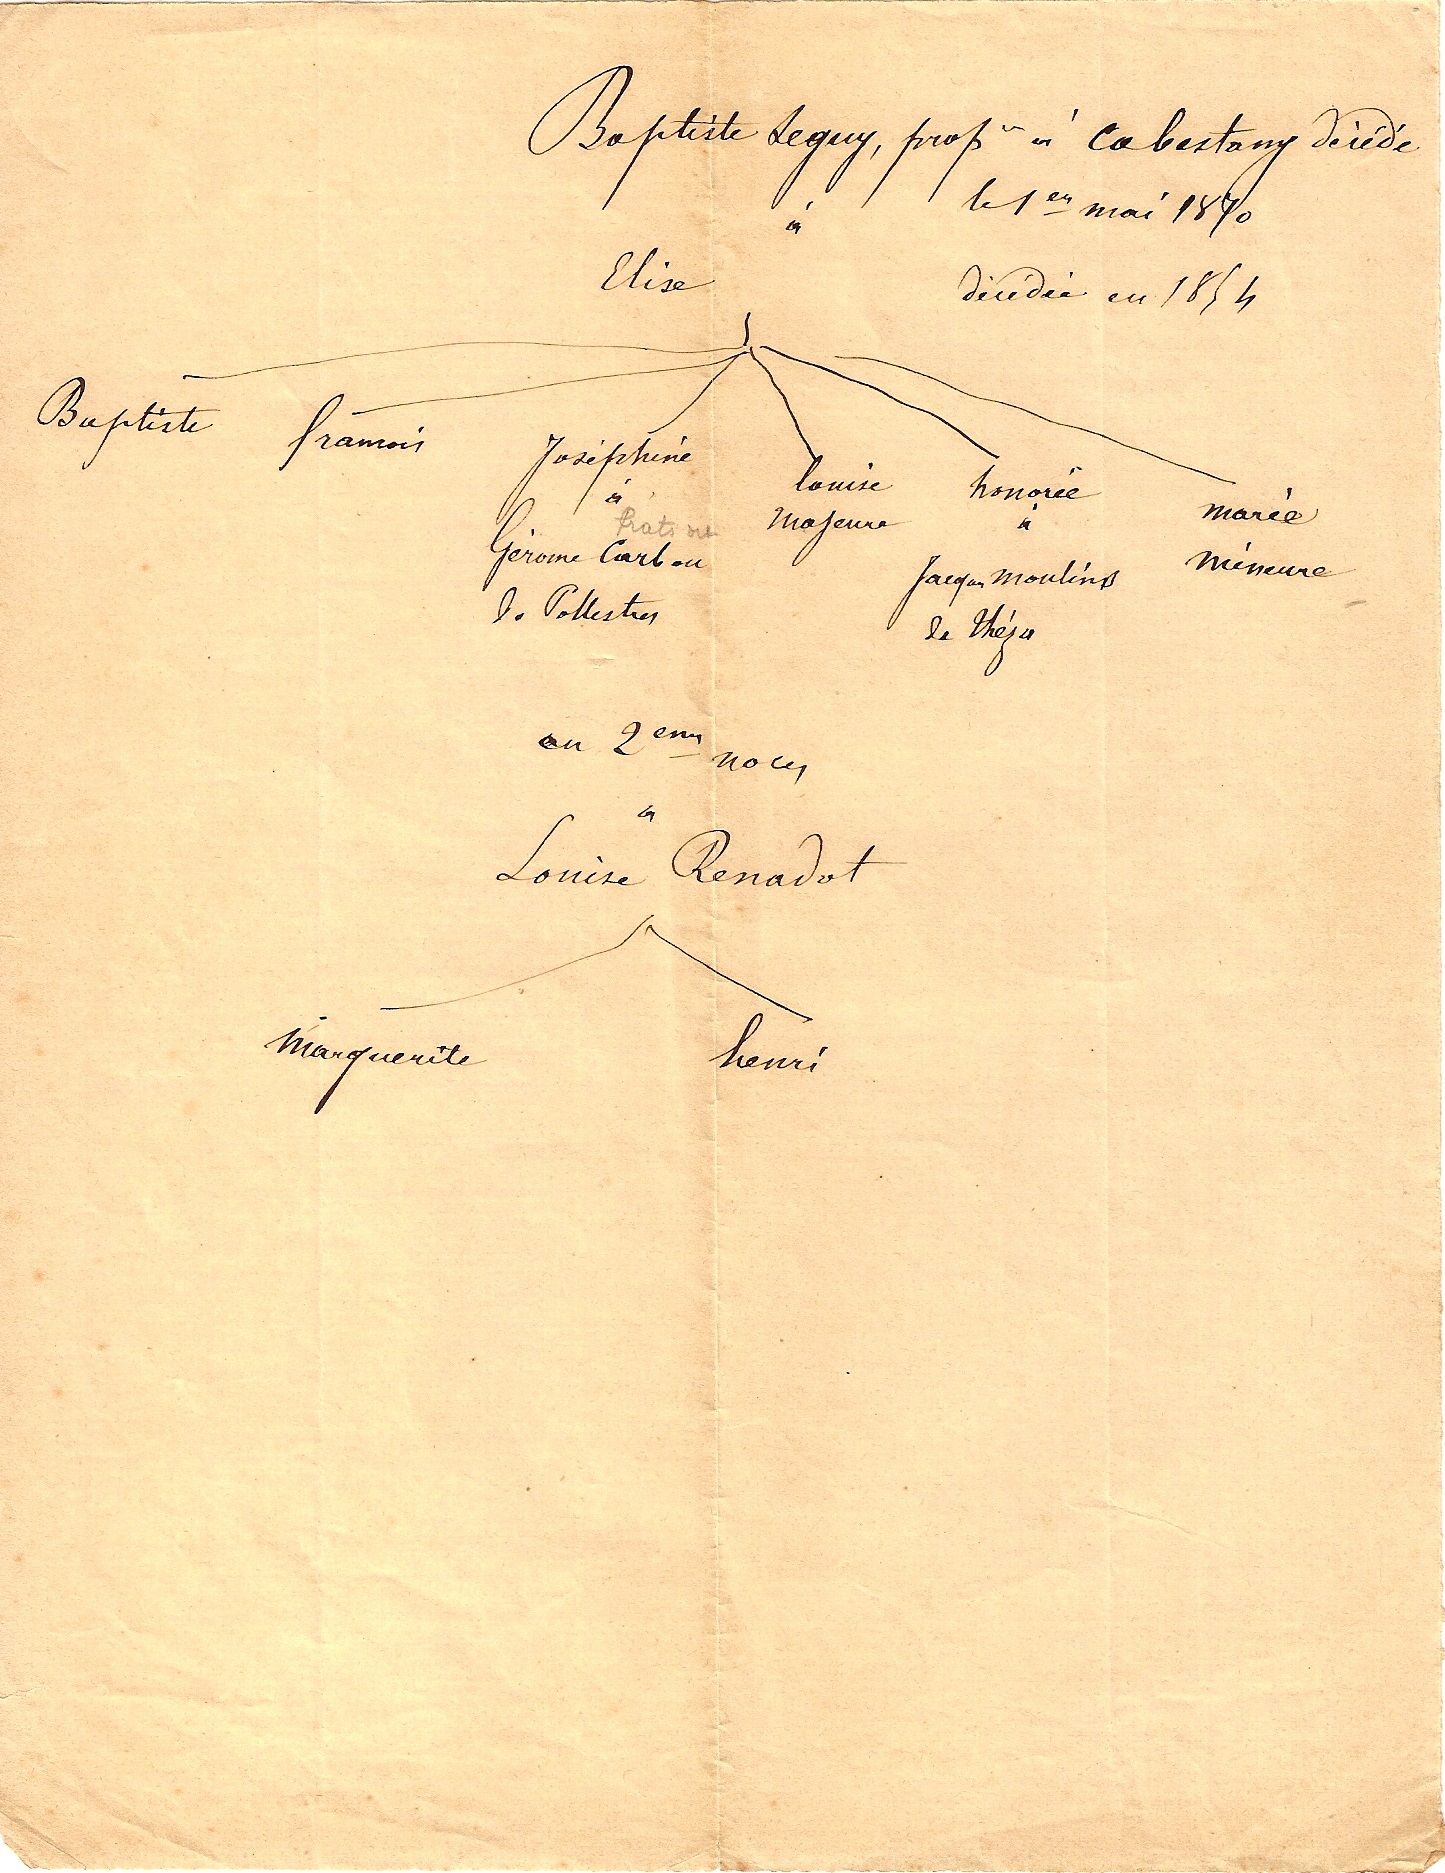 Baptiste Seguy, prop^re à Cabestany décédé
à le 1er mai 1870
Elise décédée en 1854
Baptiste françois Joséphine louise honorée marie
à majeure à mineure
Gérome Carbou Jacques moulins
de Pollestres de théza
en 2emes noces
à
Louise Renadot
Marguerite henri